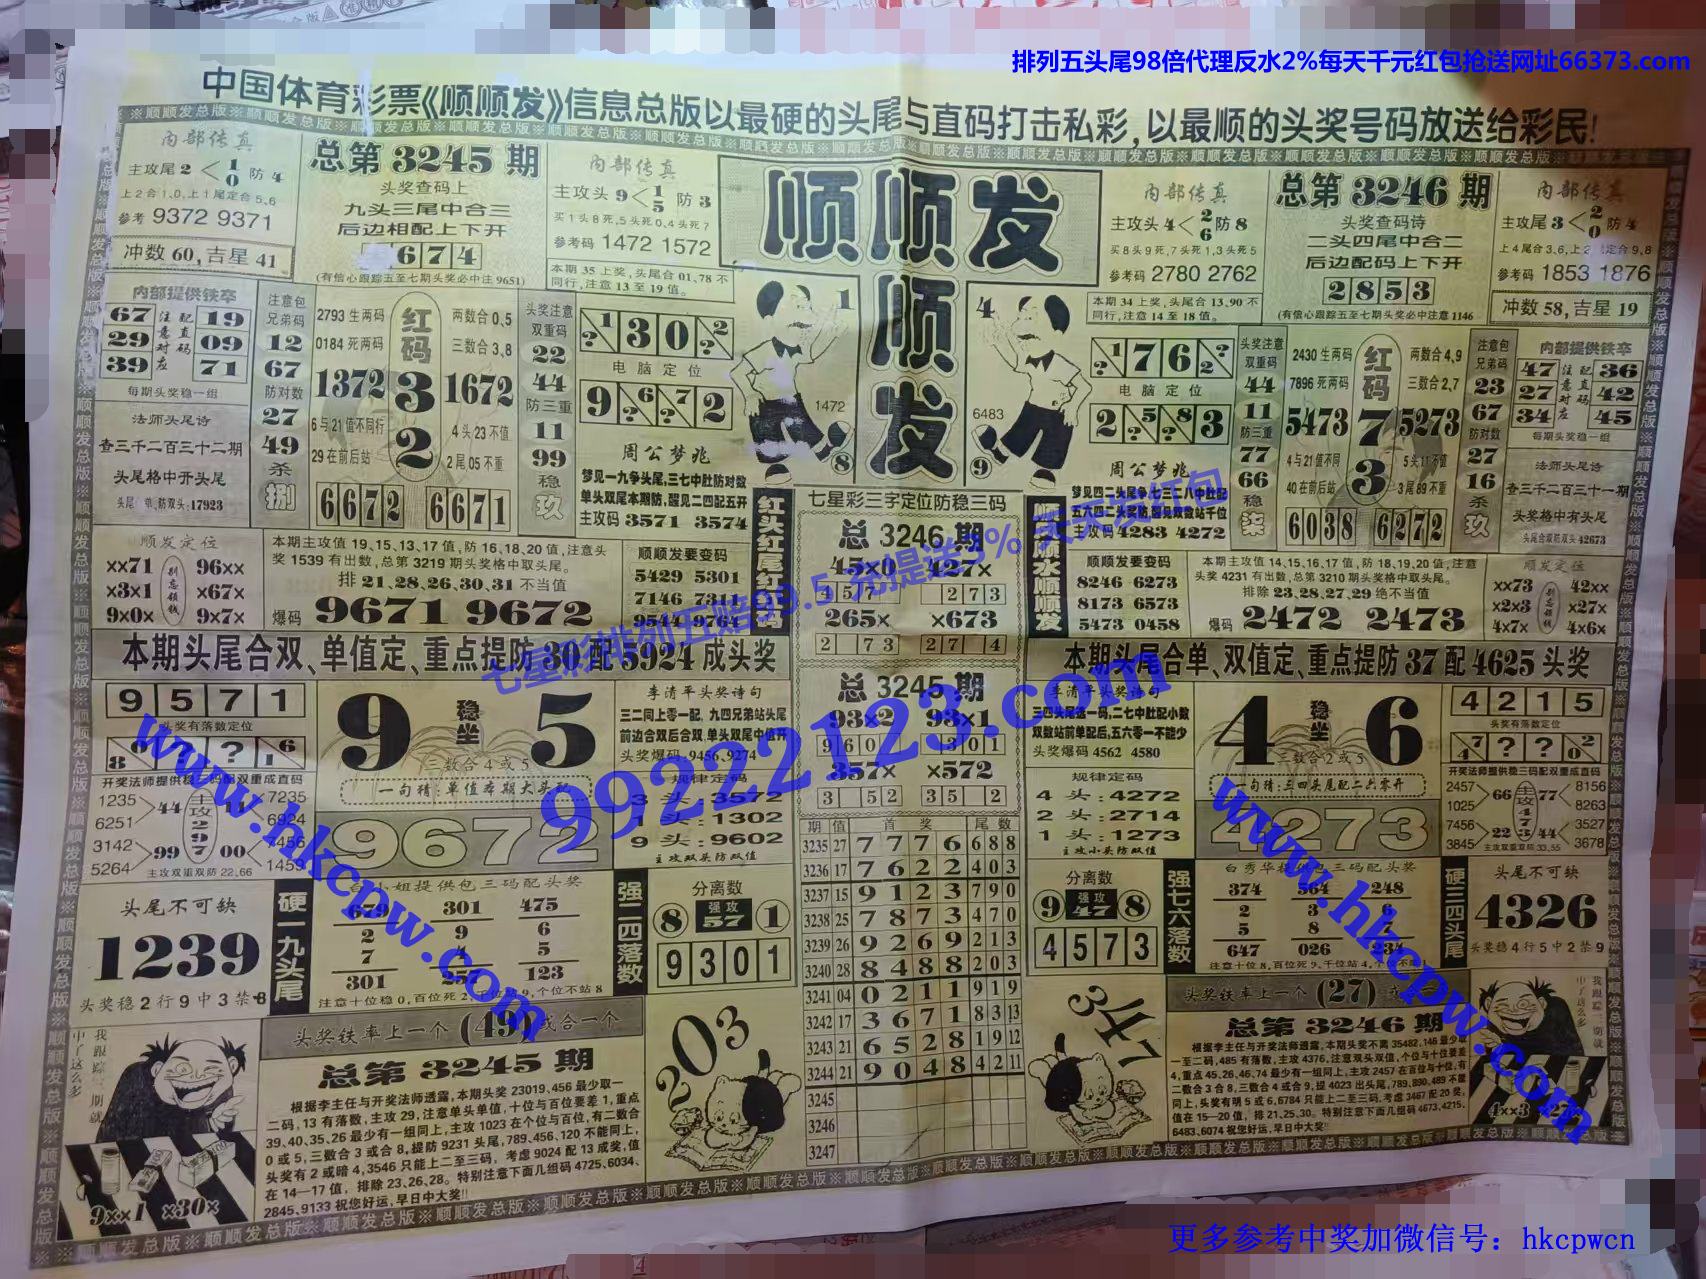 排列五头尾98倍代理反水2%每天千元红包抢送网址66373.com
中国体育彩票《顺顺发》信息总版以最硬的头尾与直码打击私彩,以最顺的头奖号码放送给彩民!
内部传真
主攻尾2<1 0 防4
上2合1.0,上1尾定合5.6
参考 9372 9371
冲数60,吉星41
总第3245期
头奖查码上
九头三尾中合三
后边相配上下开
674
(有信心跟踪五至七期头奖必中注9651)
内部传真
主攻头9<1 5 防3
买1头8死,5头死0,4头死7
参考码 1472 1572
本期35上奖,头尾合01,78不
同行,注意13至19值。
顺顺发
顺
发
内部传真
主攻头4<2 6 防8
买8头9死,7头死1,3头死5
参考码 2780 2762
本期34上奖,头尾合13,90不
同行,注意14至18值。
总第3246期
头奖查码诗
二头四尾中合二
后边配码上下开
2853
(有信心跟踪五至七期头奖必中注1146
内部传真
主攻尾3<2 0 防4
参考码 1853 1876
冲数58,吉星19
内部提供铁卒
67 注配 19
29 意直 09
对码
39 应 71
每期头奖稳一组
法师头尾诗
查三千二百三十二期
头尾格中开头尾
注意包
兄弟码
12
67
防对数
27
49
杀
捌
2793生两码
0184死两码
1372
6与21值不同行
29在前后站
红码
3
2
两数合0,5
三数合3,8
1672
4头23不值
2尾05不重
6672 6671
头奖注意
双重码
22
44
防三重
11
99
稳
玖
?1 3 0 2?
电脑定位
9 6? 7? 2
周公梦兆
梦见一九争头尾,三七中肚防对数
单头双尾本期防,醒见二四配五开
主攻码 3571 3574
1
1472
8
4
6483
9
?1 7 6 2?
电脑定位
2 5? 8? 3
周公梦兆
梦见四二头尾争,七三二八中肚配
五六四二头奖防,醒见双数站千位
主攻码 4283 4272
头奖注意
双重码
44
11
防三重
77
66
稳
柒
2430生两码
7896死两码
5473
4与21值不同
40在前后站
红码
7
3
两数合4,9
三数合2,7
5273
5头11不值
3尾89不重
6038 6272
注意包
兄弟码
23
67
防对数
27
16
杀
玖
内部提供铁卒
47 注配 36
27 意直 42
对码
34 应 45
每期头奖稳一组
法师头尾诗
查三千二百三十一期
头奖格中有头尾
头尾合双防双头42673
顺发定位
xx71 96xx
x3x1 x67x
9x0x 9x7x
别忘领钱
本期主攻值19、15、13、17值,防16、18、20值,注意头
奖1539有出数,总第3219期头奖格中取头尾。
排21,28,26,30,31不当值
爆码 9671 9672
顺顺发要变码
5429 5301
7146 7311
9544 9764
红头红尾红红码
七星彩三字定位防稳三码
总3246期
45x0 427x
273
265x x673
2 73 27 4
总3245期
93x2 93x1
960 301
357x x572
3 52 35 2
顺风顺水顺顺发
顺顺发要变码
8246 6273
8173 6573
5473 0458
本期主攻值14、15、16、17值,防18、19、20值,注意
头奖4231有出数,总第3210期头奖格中取头尾。
排除23,28,27,29绝不当值
爆码 2472 2473
顺发定位
xx73 42xx
x2x3 x27x
4x7x 4x6x
别忘领钱
本期头尾合双、单值定、重点提防30配5924成头奖
本期头尾合单、双值定、重点提防37配4625头奖
9571
头奖有落数定位
开奖法师提供稳三码配双重成直码
1235
6251
3142
5264
44
11
99
00
主攻2997
7235
6924
7456
1459
主攻双重双防22,66
9 稳坐 5
三数合4或5
一句猜:单值存期大头配
9672
李清平头奖诗句
三二同上零一配,九四兄弟站头尾
前边合双后合双,单头双尾中值开
头奖爆码:9456,9274
规律定码
3头:3572
1头:1302
9头:9602
主攻双头防双值
李清平头奖诗句
三四头尾选一码,二七中肚配小数
双数站前单配后,五六零一不能少
头奖爆码4562 4580
规律定码
4头:4272
2头:2714
1头:1273
主攻小头防双值
4 稳坐 6
三数合2或5
一句猜:三四头尾配二六零开
4273
4215
头奖有落数定位
开奖法师提供稳三码配双重成直码
2457
1025
7456
3845
66
77
22
44
主攻4733
8156
8263
3527
3678
主攻双重双防33,55
期 值 首奖 尾数
3235 27 7776 688
3236 17 7622 403
3237 15 9123 790
3238 25 7873 470
3239 26 9269 213
3240 28 8488 203
3241 04 0211 919
3242 17 3671 8313
3243 21 6528 1912
3244 21 9048 4211
3245
3246
3247
头尾不可缺
1239
头奖稳2行9中3禁8
硬一九头尾
白小姐提供包三码配头奖
679 301 475
2 9 6
7 4 5
301 257 123
强二四落数
分离数
8 强攻57 1
9301
分离数
9 强攻47 8
4573
强七六落数
白秀华提供包三码配头奖
374 564 248
2 3 6
5 8 7
647 026 234
硬三四头尾
头尾不可缺
4326
头奖稳4行5中2禁9
我跟踪三期就
中了这么多
9xx1 x30x
头奖铁率上一个(49)或合一个
总第3245期
根据李主任与开奖法师透露,本期头奖23019,456最少取一
二码,13有落数,主攻29,注意单头单值,十位与百位要差1,重点
39,40,35,26最少有一组同上,主攻1023在个位与百位,有二数合
0或5,三数合3或合8,提防9231头尾,789,456,120不能同上,
头奖有2或暗4,3546只能上二至三码,考虑9024配13成奖,值
在14—17值,排除23,26,28。特别注意下面几组码4725,6034,
2845,9133祝您好运,早日中大奖!!
203
头奖铁率上一个(27)
总第3246期
根据李主任与开奖法师透露,本期头奖不离35482,146最少取
一至二码,485有落数,主攻4376,注意双头双值,个位与十位要差
4,重点45,26,46,74最少有一组同上,主攻2457在百位与十位,有
二数合3合8,三数合4或合9,提4023出头尾,789,890,489不能
同上,头奖有明5或6,6784只能上二至三码,考虑3467配20奖,
值在15—20值,排21,25,30。特别注意下面几组码4673,4215,
6483,6074祝您好运,早日中大奖!
我跟踪三期就
中了这么多
4xx3 x27x
www.hkcpw.com
99222123.com
www.hkcpw.com
更多参考中奖加微信号:hkcpwcn